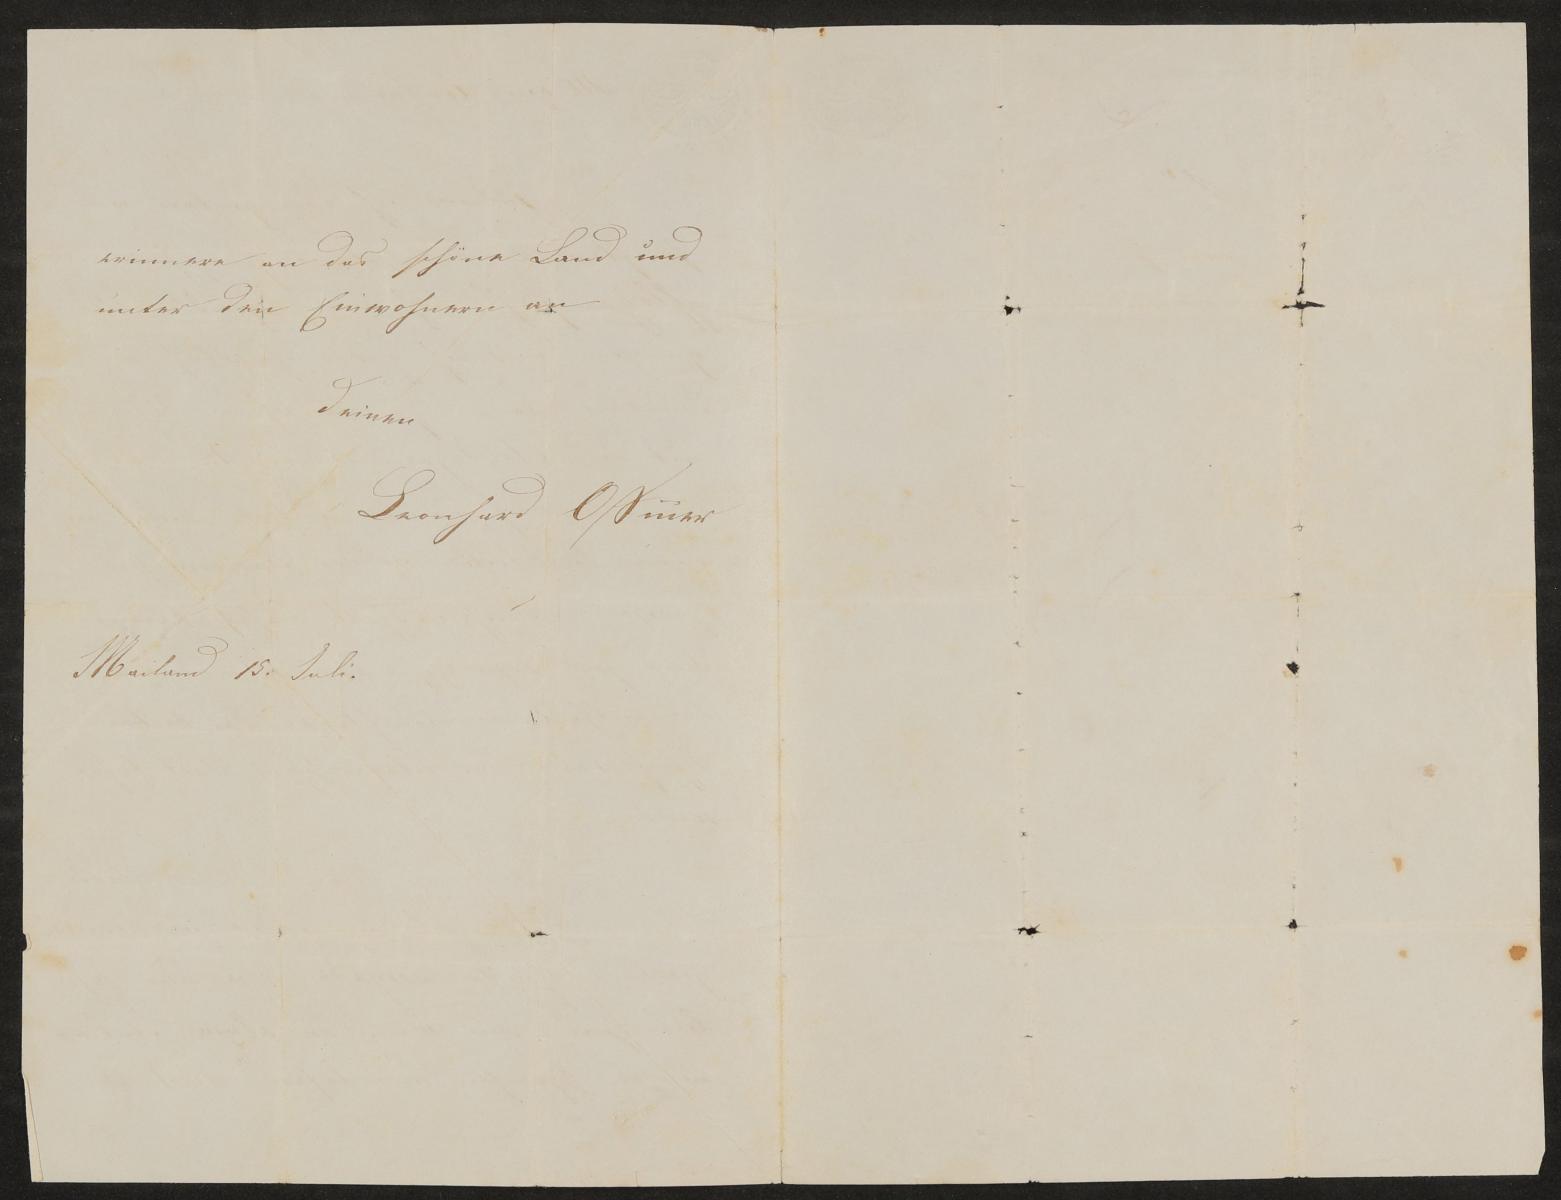 erinnere an das schöne Land und
unter den Einwohnern an
deinen
Leonhard
Mailand 15. Juli.